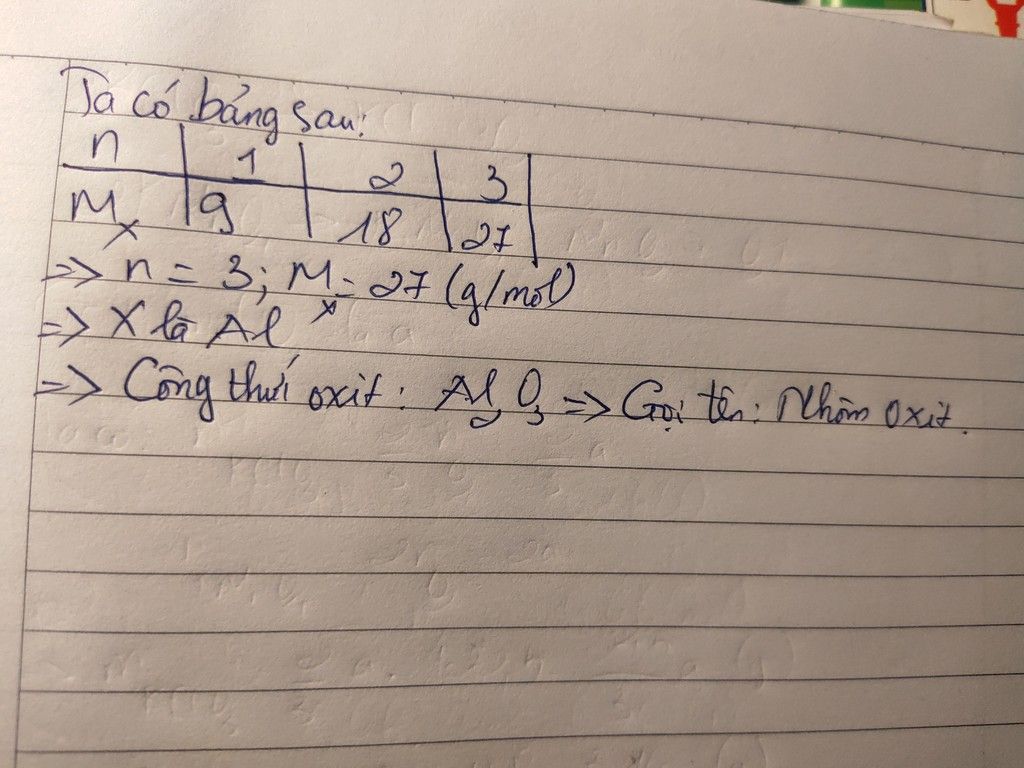 Ta có bảng sau:
n | 1 | 2 | 3
Mx | 9 | 18 | 27
=> n = 3; Mx = 27 (g/mol)
=> X là Al
=> Công thức oxit: Al2O3 => Gọi tên: Nhôm oxit.